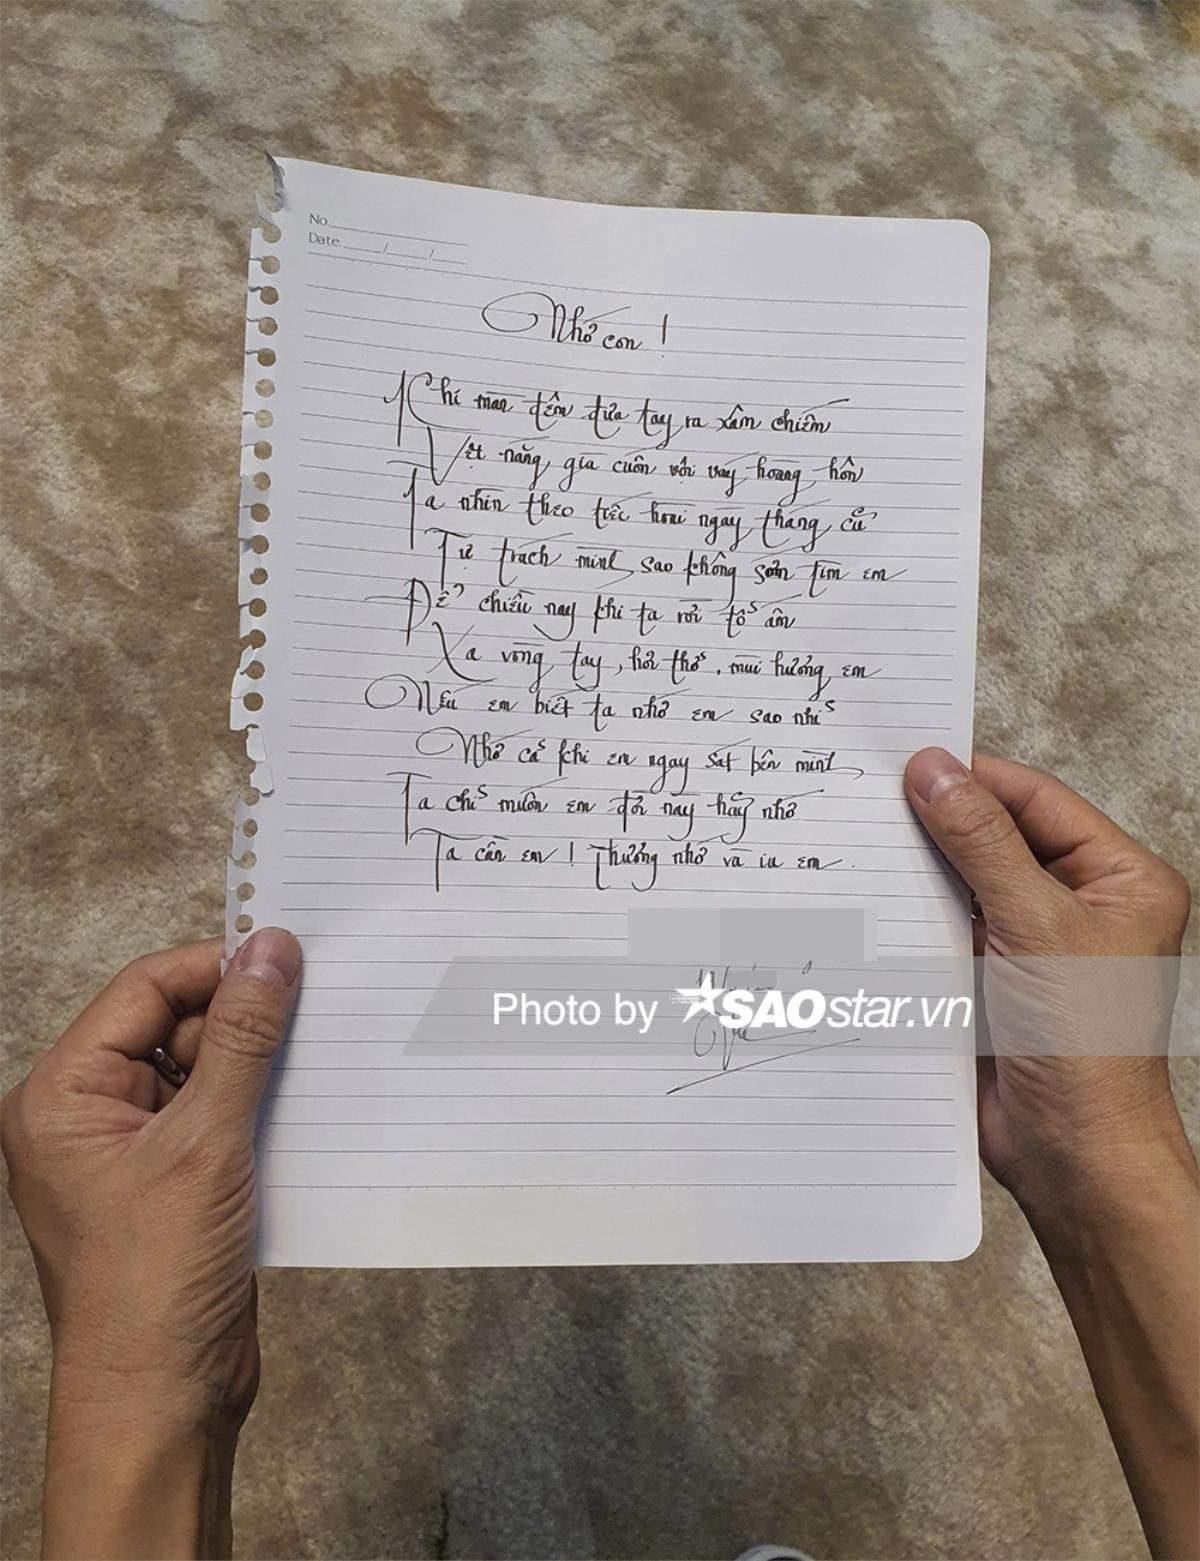 No.
Date. / /
Nhớ con !
Khi màn đêm đưa tay ra xâm chiếm
Vệt nắng già cuốn vội váy hoàng hôn
Ta nhìn theo tiếc hoài ngày tháng cũ
Tự trách mình sao không sớm tìm em
Để chiều nay khi ta rời tổ ấm
Xa vòng tay, hơi thở, mùi hương em
Nếu em biết ta nhớ em sao nhỉ
Nhớ cả khi em ngay sát bên mình
Ta chỉ muốn em đời này hãy nhớ
Ta cần em ! Thương nhớ và iu em.
Photo by SAOstar.vn